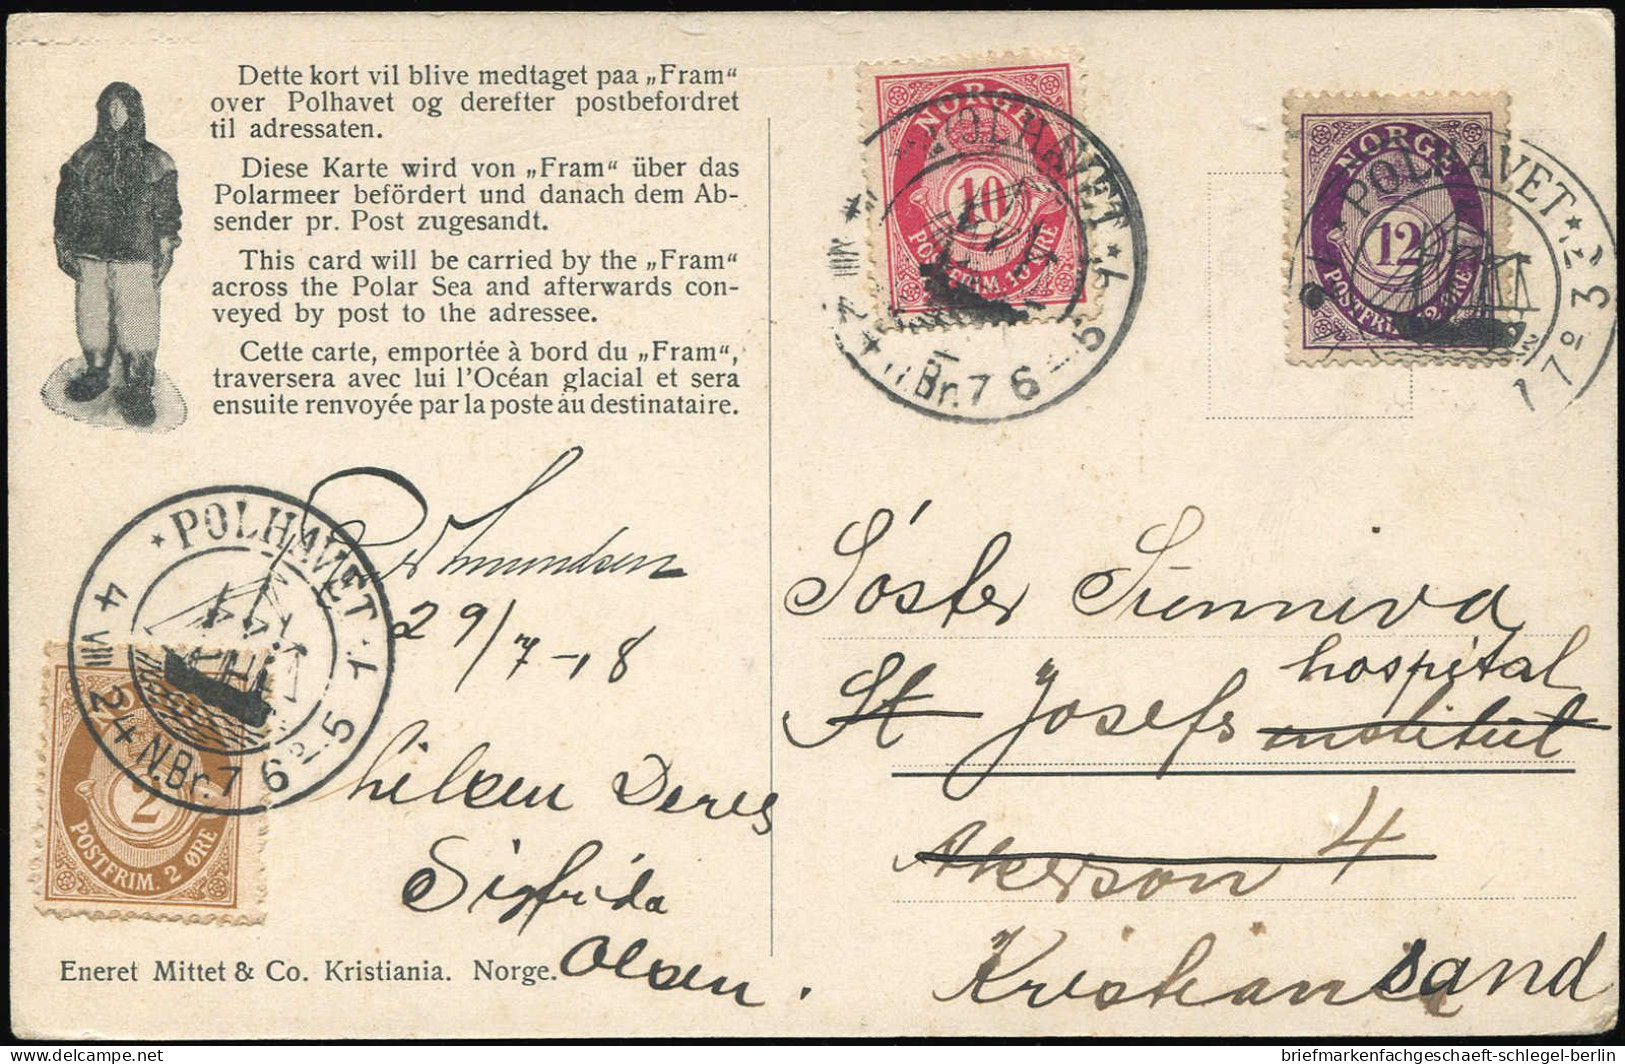 Dette kort vil blive medtaget paa „Fram“
over Polhavet og derefter postbefordret
til adressaten.
Diese Karte wird von „Fram“ über das
Polarmeer befördert und danach dem Ab-
sender pr. Post zugesandt.
This card will be carried by the „Fram“
across the Polar Sea and afterwards con-
veyed by post to the adressee.
Cette carte, emportée à bord du „Fram“,
traversera avec lui l'Océan glacial et sera
ensuite renvoyée par la poste au destinataire.
NORGE
10
POSTFRIM. 10 ØRE
POLHAVET
N.Br. 76
NORGE
12
POSTFRIM. 12 ØRE
POLHAVET
POLHAVET
4 VIII 24
N.Br. 76
2
POSTFRIM. 2 ØRE
Amundsen
29/7-18
hilsen Deres
Sigfrida
Olsen.
Söster Sunniva
St Josefs hospital
institut
Akerson 4
Kristiansand
Eneret Mittet & Co. Kristiania. Norge.
briefmarkenfachgeschaeft-schlegel-berlin